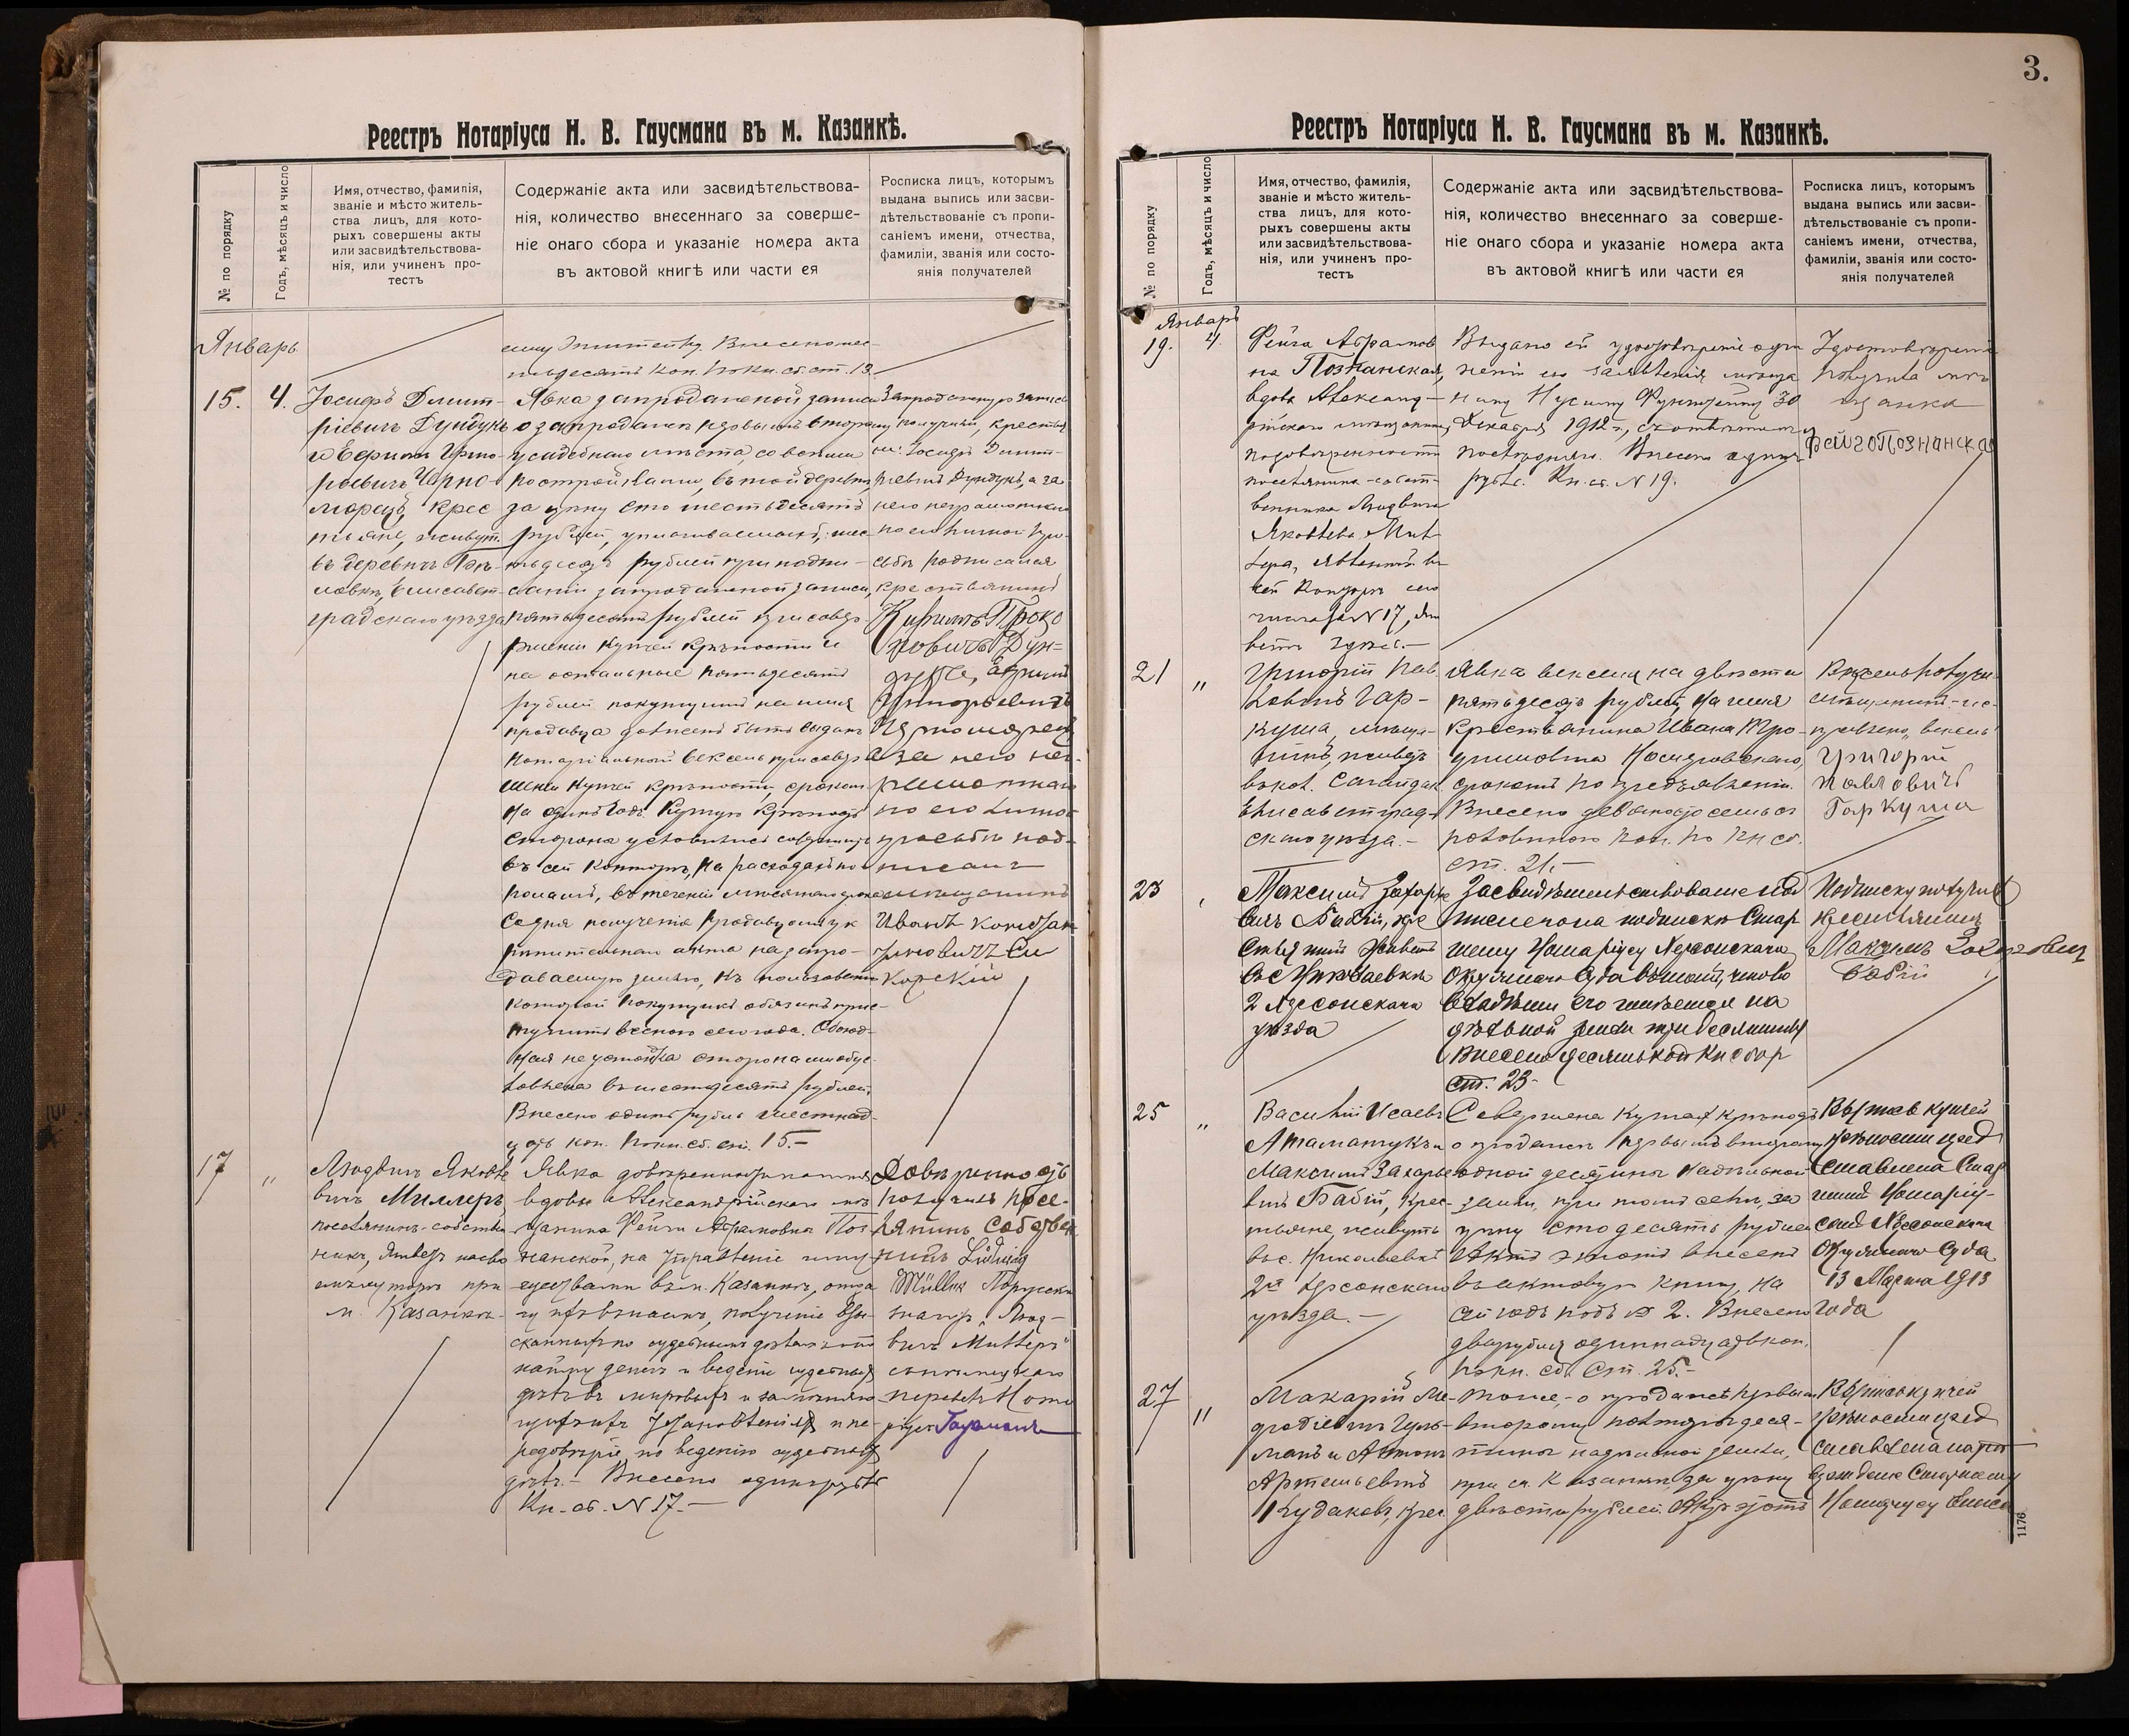 Реестръ Нотаріуса Н. В. Гаусмана въ м. Казанкѣ.
№ по порядку
Годъ, мѣсяцъ и число
Имя, отчество, фамилія,
званіе и мѣсто житель-
ства лицъ, для кото-
рыхъ совершены акты
или засвидѣтельствова-
нія, или учиненъ про-
тестъ
Содержаніе акта или засвидѣтельствова-
нія, количество внесеннаго за соверше-
ніе онаго сбора и указаніе номера акта
въ актовой книгѣ или части ея
Росписка лицъ, которымъ
выдана выпись или засви-
дѣтельствованіе съ пропи-
саніемъ имени, отчества,
фамиліи, званія или состо-
янія получателей
Январь
15. 4.
Іосифъ Дмит-
ріевичъ Дундукъ
и Ефимъ Григо-
рьевичъ Черно-
морецъ, крес
тьяне, живут.
въ деревнѣ
Елисавет-
градскаго уѣзда
Явка запродажной записи
о запродажѣ первымъ второму
усадебнаго мѣста, со всѣми
постройками, въ той деревнѣ,
за цѣну сто шестьдесятъ
рублей
рублей при подпи-
саніи запродажной записи,
пятьдесятъ рублей при совер-
шеніи купчей крѣпости и
на остальные пятьдесятъ
рублей покупщикъ на имя
продавца долженъ быть выданъ
нотаріальный вексель при совер
шеніи купчей крѣпости, срокомъ
на одинъ годъ. Купчую крѣпость
стороны условились совершить
въ сей конторѣ, на расходахъ по
поламъ, въ теченіи
со дня полученія продавцомъ ук
рѣпительнаго акта на запро-
даваемую землю, къ пользованію
которой покупщикъ обязанъ прис-
тупить весною сего года. Обоюд-
ная неустойка сторонами обус-
ловлена въ шестьдесятъ рублей.
Внесено одинъ рубль шестнад-
цать коп. по кн. сб. ст. 15.-
Запродажную запис
ь получилъ, крестьян
инъ Іосифъ Дмит-
ріевичъ Дундукъ, а за
него неграмотнаго
по его личной прось-
бѣ подписался
крестьянинъ
Прокo
повичъ Дун-
Ефимъ
Григорьевичъ
Черноморецъ
а за него нег-
рамотнаго
по его личной
просьбѣ под-
писалъ
мѣщанинъ
Иванъ
17 "
Людвигъ Яковле
вичъ Миллеръ,
поселянинъ-собствен
никъ, живетъ на его
хуторѣ при
м. Казанкѣ
Явка довѣренности на имя
вдовы Александрійскаго мѣ
щанина Фейги Абрамовны Поз
нанской, на управленіе иму-
ществами въ м. Казанкѣ, отда
чу ихъ въ наемъ, полученіе взы-
сканныхъ по судебнымъ дѣламъ
денегъ и веденіе судебныхъ
дѣлъ въ мировыхъ
установленіяхъ и пе-
редовѣріе по веденію судебныхъ
дѣлъ.- Внесено одинъ рубль
Кн. сб. N 17.-
Довѣренность
получилъ посе-
лянинъ собствен
никъ Ludwig
Müller По русски
значитъ „Люд-
вигъ Миллеръ"
съ нѣмецкаго
перевелъ Нота
ріусъ Гаусманъ
3.
Реестръ Нотаріуса Н. В. Гаусмана въ м. Казанкѣ.
№ по порядку
Годъ, мѣсяцъ и число
Имя, отчество, фамилія,
званіе и мѣсто житель-
ства лицъ, для кото-
рыхъ совершены акты
или засвидѣтельствова-
нія, или учиненъ про-
тестъ
Содержаніе акта или засвидѣтельствова-
нія, количество внесеннаго за соверше-
ніе онаго сбора и указаніе номера акта
въ актовой книгѣ или части ея
Росписка лицъ, которымъ
выдана выпись или засви-
дѣтельствованіе съ пропи-
саніемъ имени, отчества,
фамиліи, званія или состо-
янія получателей
Январь
19. 4.
Фейга Абрамов
на Познанская,
вдова Александ-
рійскаго мѣщанина,
по довѣренности
поселянина-собст-
венника Людвига
Яковлева Мил
лера, явленной въ
сей конторѣ сего
числа за N 17, жи
ветъ здѣсь.-
Выдано ей удостовѣреніе о учи
неніи ею заявленія мѣща
нину Нусину 30
Декабря 1912 г., съ отвѣтомъ
послѣдняго. Внесенъ одинъ
рубль. Кн. сб. N 19.
Удостовѣреніе
получила мѣ-
щанка
Фейга Познанская
21 "
Григорій Пав
ловичъ Гар-
куша, мѣща-
нинъ, живетъ
Елисаветград-
скаго уѣзда.-
Явка векселя на двѣсти
пятьдесятъ рублей, на имя
крестьянина Ивана Тро-
фимовича
срокомъ по предъявленіи.
Внесено девяносто семь съ
половиною коп. по кн сб.
ст. 21.-
Вексель получи
лъ мѣщанинъ
Григорій
Павловичъ
Гаркуша
23 "
Максимъ Захарье
вичъ Бабій, кре
стьянинъ живетъ
въ с Николаевкѣ
2 Херсонскаго
уѣзда
Засвидѣтельствованіе под
писи на подпискѣ Стар
шему Нотаріусу Херсонскаго
Окружнаго Суда въ томъ, что во
владѣніи его имѣется на
дѣльной земли три десятины
Внесено десять коп Кн сбор
ст. 23-
Подписку получилъ
крестьянинъ
Максимъ Захаровичъ
Бабій
25 "
Василій Исаевъ
Атаманчукъ и
Максимъ Захарье
вичъ Бабій, крес-
тьяне, живутъ
въ с. Николаевкѣ
2й Херсонскаго
уѣзда.-
Совершена купчая крѣпость
о продажѣ первымъ второму
одной десятины надѣльной
земли, при томъ селѣ, за
цѣну сто десять рублей
Актъ этотъ внесенъ
въ актовую книгу, на
сей годъ подъ № 2. Внесено
два рубля одиннадцать коп.
по кн. сб. ст. 25.-
Выпись купчей
крѣпости пред
ставлена Стар
шимъ Нотаріу-
сомъ Херсонскаго
Окружнаго Суда
13 Марта 1913
года
27 "
Макарій Ме-
фодіевичъ Гуль-
манъ и Антонъ
Артемьевичъ
Кудаковъ, крес.
Тоже,- о продажѣ первымъ
второму полторы деся-
тины надѣльной земли,
при м. Казанкѣ, за цѣну
двѣсти рублей. Актъ этотъ
Выпись купчей
крѣпости пред
ставлена
Старшему
Нотаріусу Елиса
1176